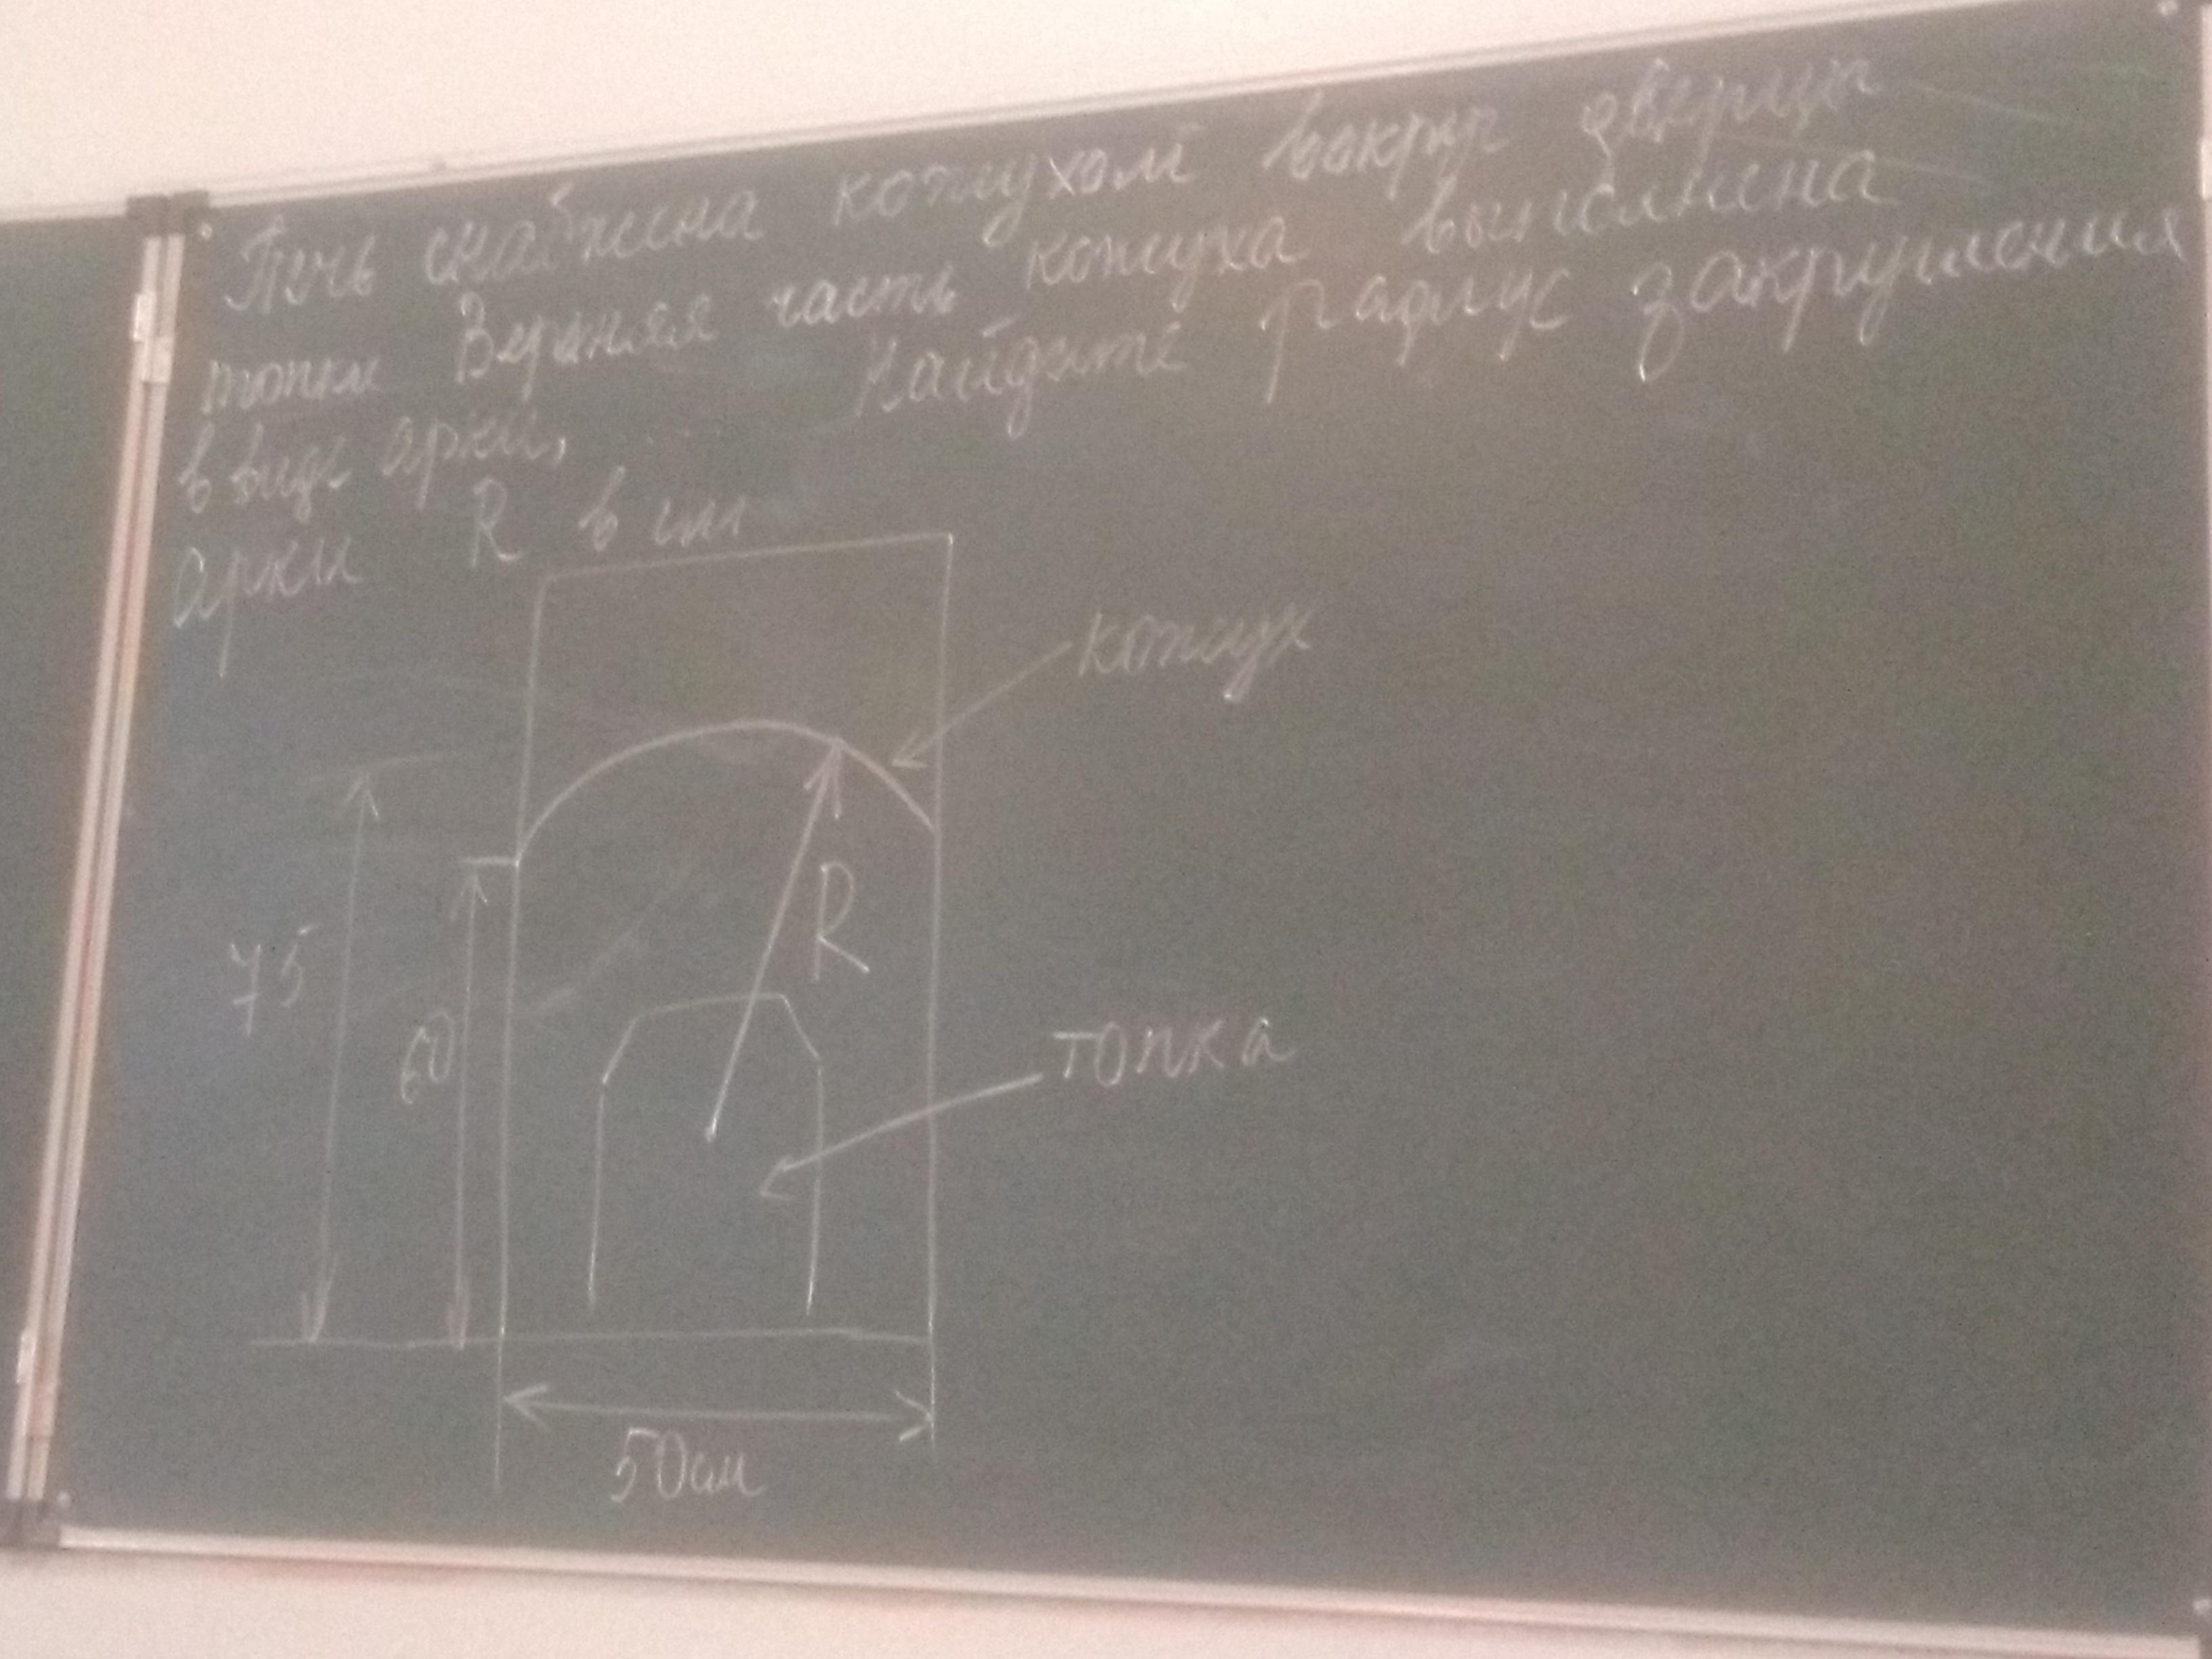 Печь снабжена кожухом вокруг дверцы
топки Верхняя часть кожуха выполнена
в виде арки, Найдите радиус закругления
арки R в см
кожух
R
75
60
топка
50см